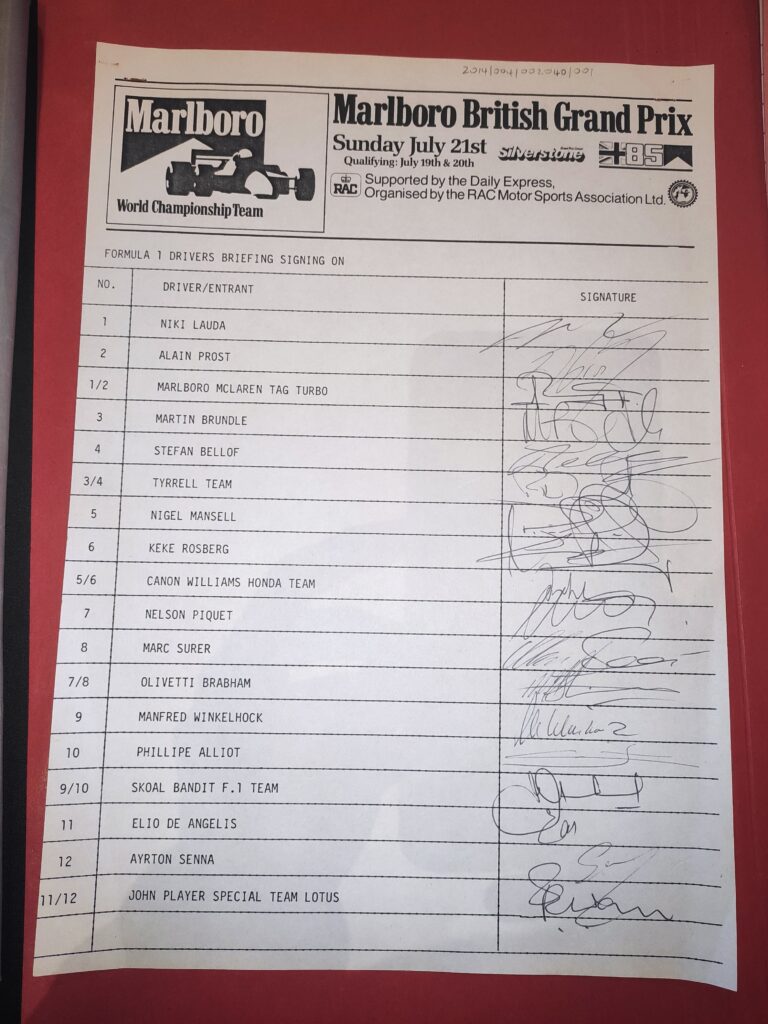 2014/004/002040/001
Marlboro
World Championship Team
Marlboro British Grand Prix
Sunday July 21st
Qualifying: July 19th & 20th
Silverstone
85
RAC
Supported by the Daily Express,
Organised by the RAC Motor Sports Association Ltd.
FORMULA 1 DRIVERS BRIEFING SIGNING ON
NO. DRIVER/ENTRANT SIGNATURE
1 NIKI LAUDA
2 ALAIN PROST
1/2 MARLBORO MCLAREN TAG TURBO
3 MARTIN BRUNDLE
4 STEFAN BELLOF
3/4 TYRRELL TEAM
5 NIGEL MANSELL
6 KEKE ROSBERG
5/6 CANON WILLIAMS HONDA TEAM
7 NELSON PIQUET
8 MARC SURER
7/8 OLIVETTI BRABHAM
9 MANFRED WINKELHOCK
10 PHILLIPE ALLIOT
9/10 SKOAL BANDIT F.1 TEAM
11 ELIO DE ANGELIS
12 AYRTON SENNA
11/12 JOHN PLAYER SPECIAL TEAM LOTUS